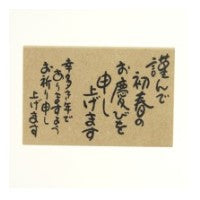 謹んで
初春の
お慶びを
申し
上げます
幸多き年で
ありますよう
お祈り申し
上げます